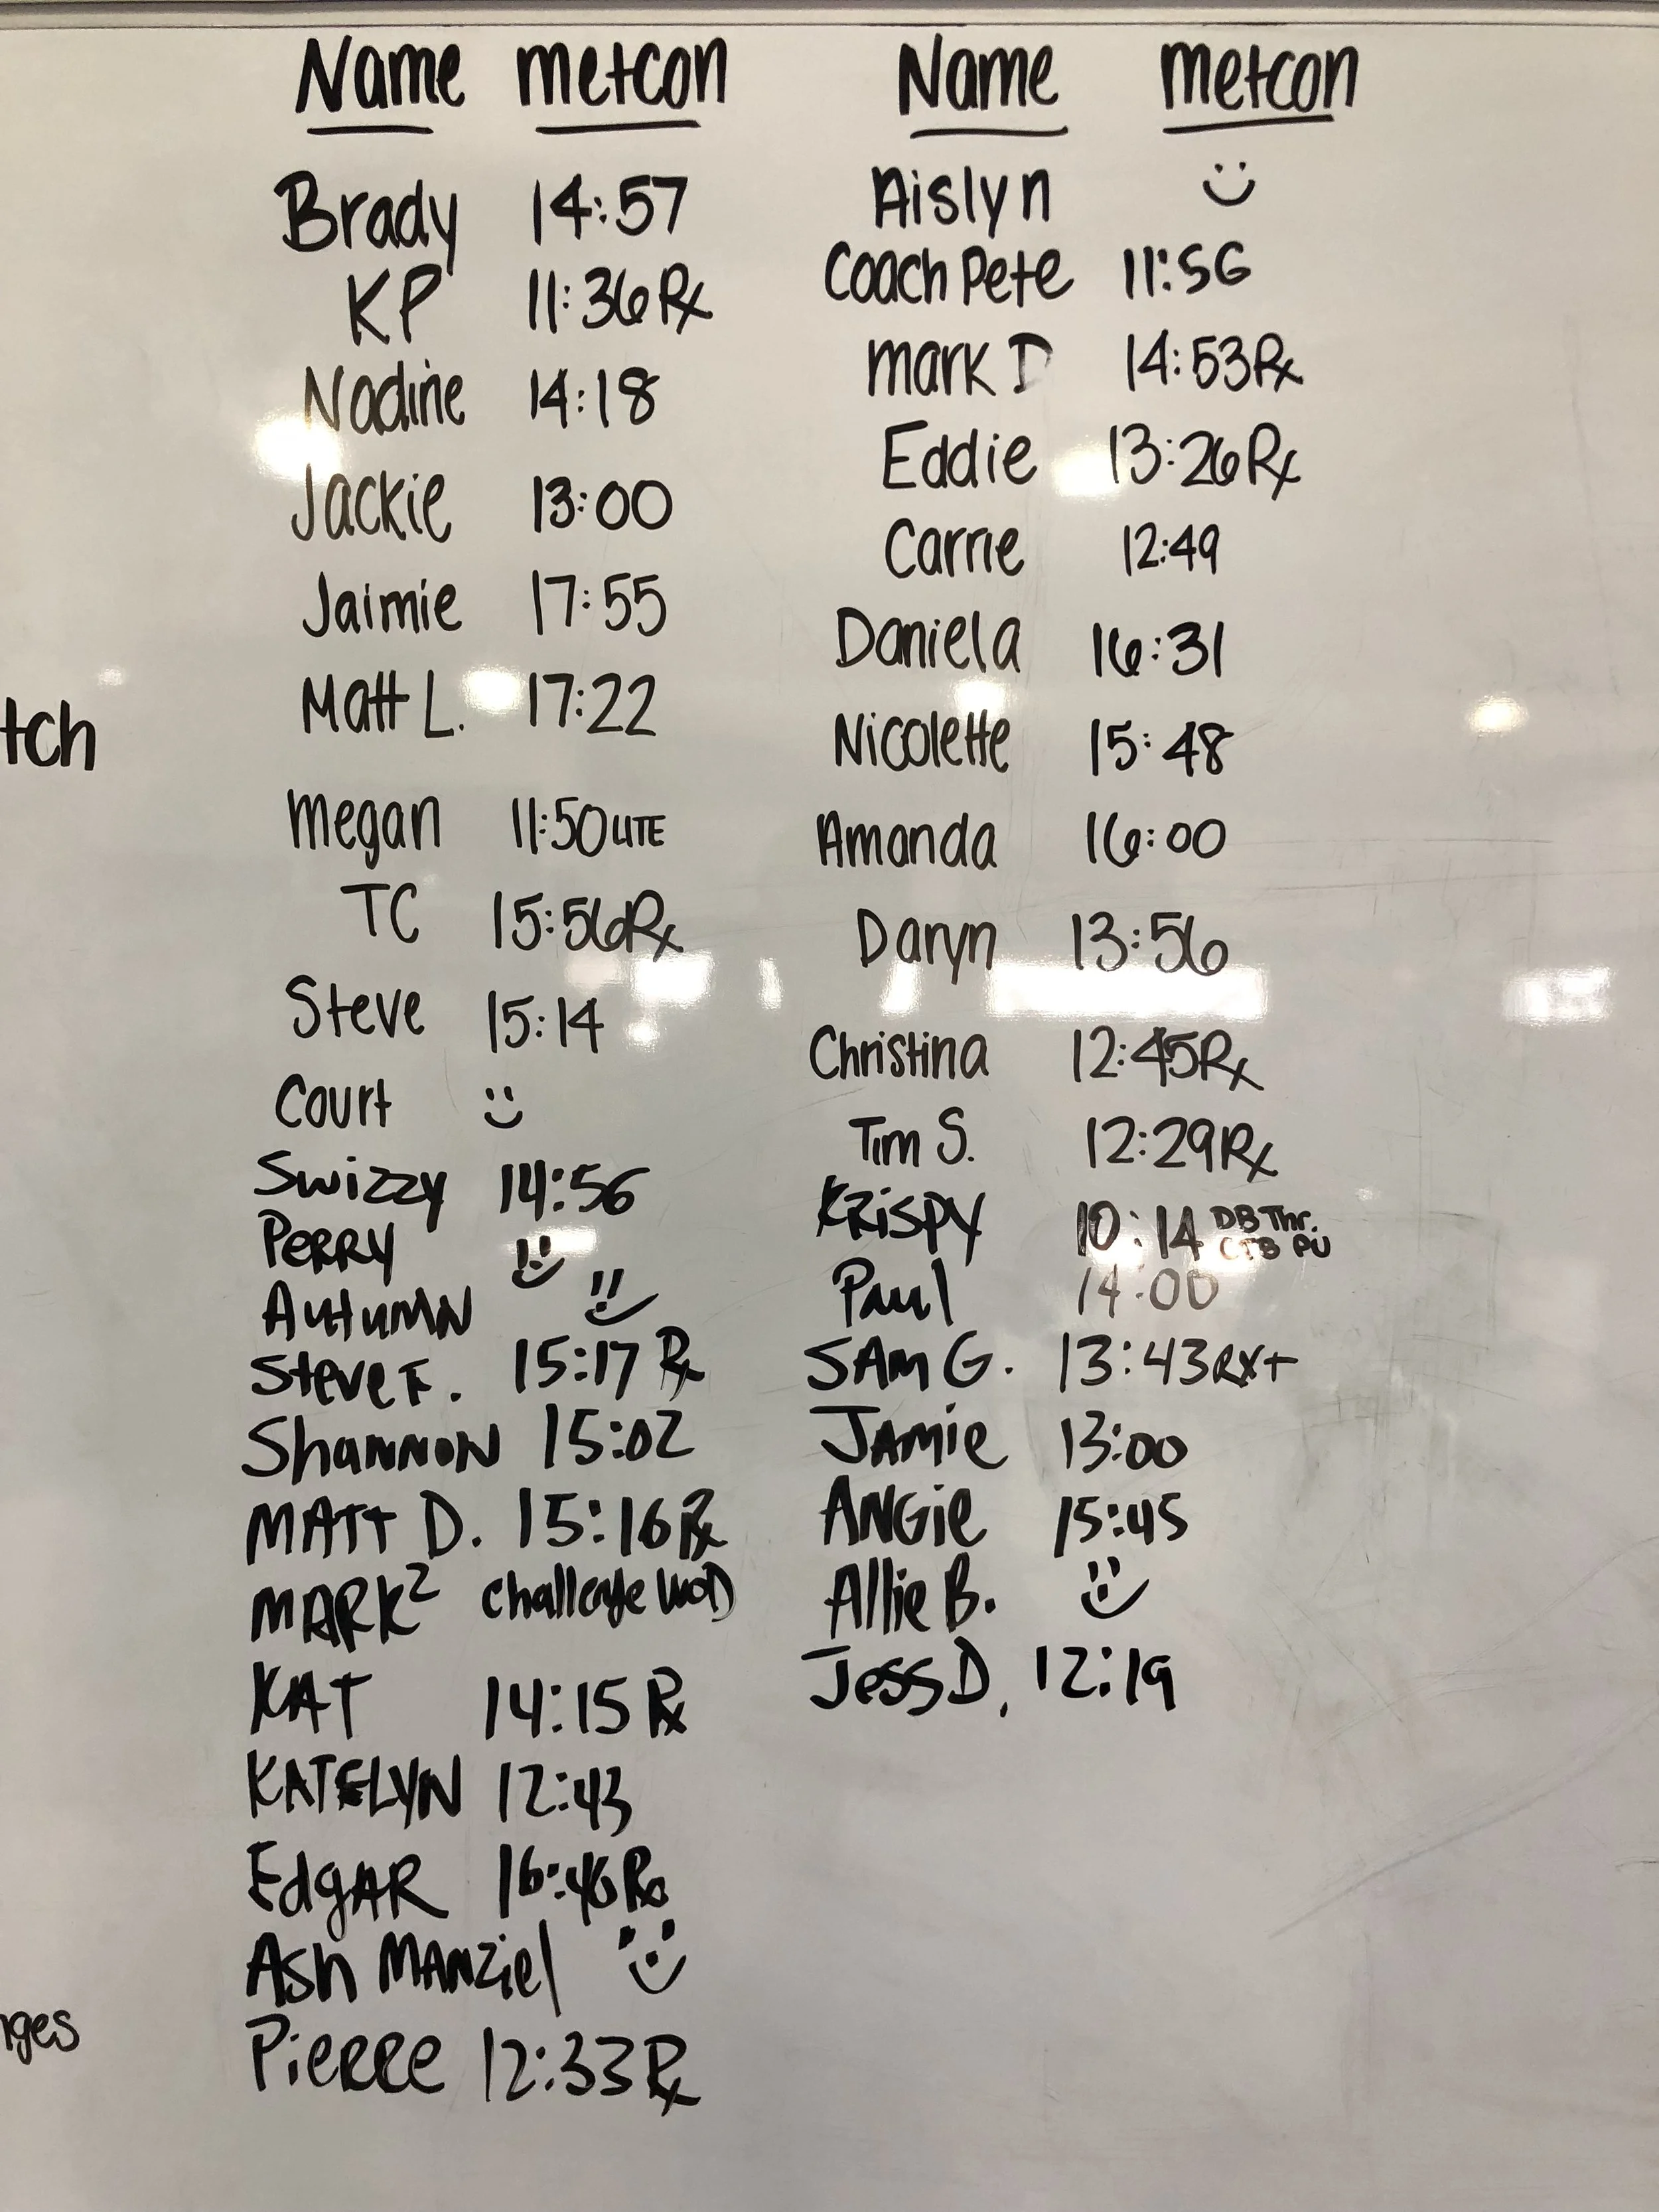 Name metcon
Brady 14:57
KP 11:36 Rx
Nadine 14:18
Jackie 13:00
Jaimie 17:55
Matt L. 17:22
Megan 11:50 LITE
TC 15:56 Rx
Steve 15:14
Court
Swizzy 14:56
PERRY
AutuMN
Steve F. 15:17 Rx
ShaNNoN 15:02
MATT D. 15:16 Rx
MARK² Challenge WOD
KAT 14:15 Rx
KATELYN 12:43
EdgAR 16:46 Rx
Ash MANZiel
PiERRE 12:33 Rx
Name metcon
Aislyn
Coach Pete 11:56
Mark D 14:53 Rx
Eddie 13:26 Rx
Carrie 12:49
Daniela 16:31
Nicolette 15:48
Amanda 16:00
Daryn 13:56
Christina 12:45 Rx
Tim S. 12:29 Rx
KRiSPY 10:14 DB Thr.
CTB PU
Paul 14:00
SAM G. 13:43 RX+
JAmie 13:00
ANGie 15:45
Allie B.
Jess D. 12:19
tch
nges